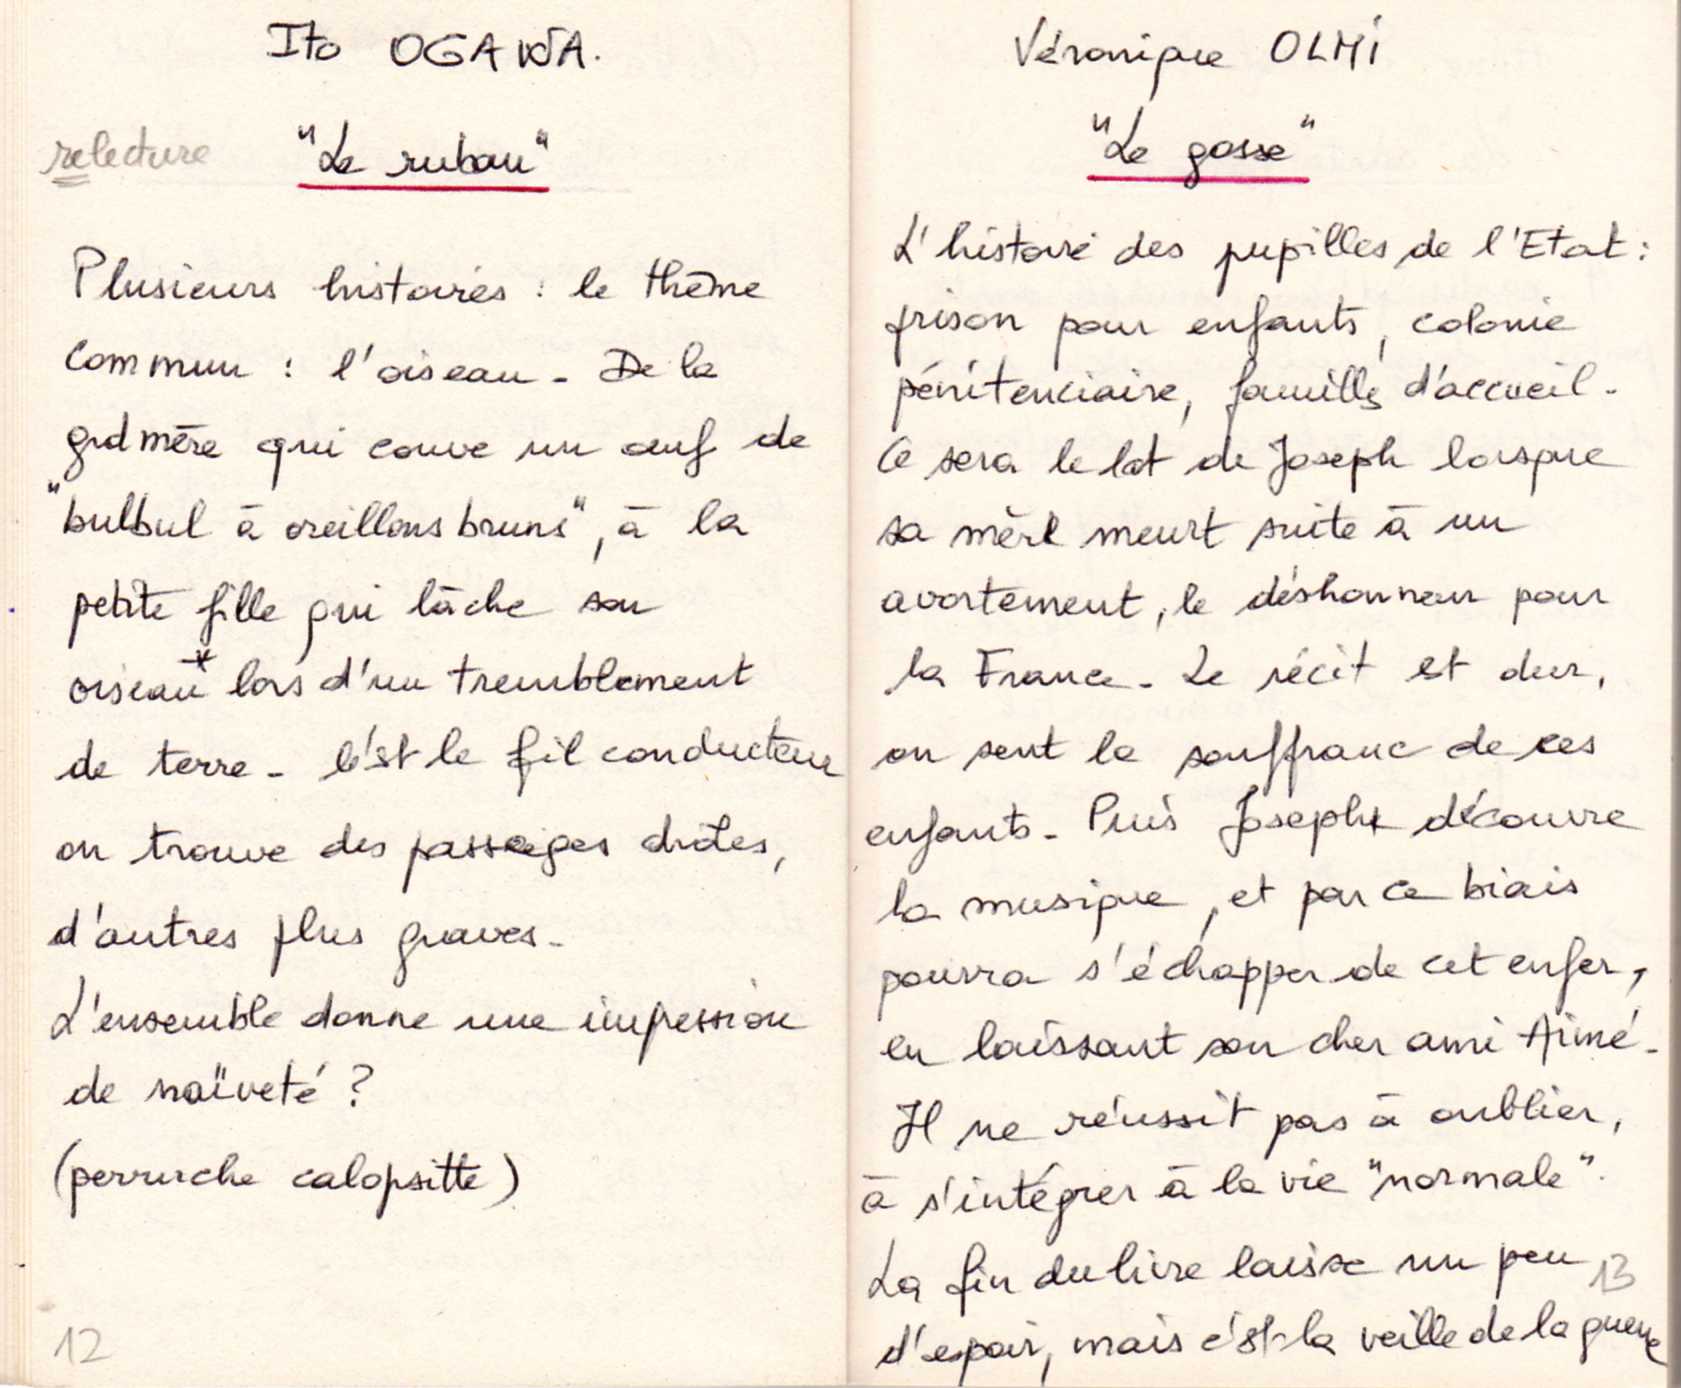 Ito OGAWA.
relecture "Le ruban"
Plusieurs histoires : le thème
commun : l'oiseau - De la
grd mère qui couve un œuf de
"bulbul à oreillons bruns", à la
petite fille qui lâche son
oiseau* lors d'un tremblement
de terre - C'est le fil conducteur
on trouve des passages drôles,
d'autres plus graves -
L'ensemble donne une impression
de naïveté ?
(perruche calopsitte)
12
Véronique OLMI
"Le gosse"
L'histoire des pupilles de l'Etat :
prison pour enfants, colonie
pénitenciaire, familles d'accueil -
Ce sera le lot de Joseph lorsque
sa mère meurt suite à un
avortement, le déshonneur pour
la France - Le récit est dur,
on sent la souffrance de ces
enfants - Puis Joseph découvre
la musique, et par ce biais
pourra s'échapper de cet enfer,
en laissant son cher ami Aimé -
Il ne réussit pas à oublier,
à s'intégrer à la vie "normale".
La fin du livre laisse un peu
d'espoir, mais c'est la veille de la guerre
13